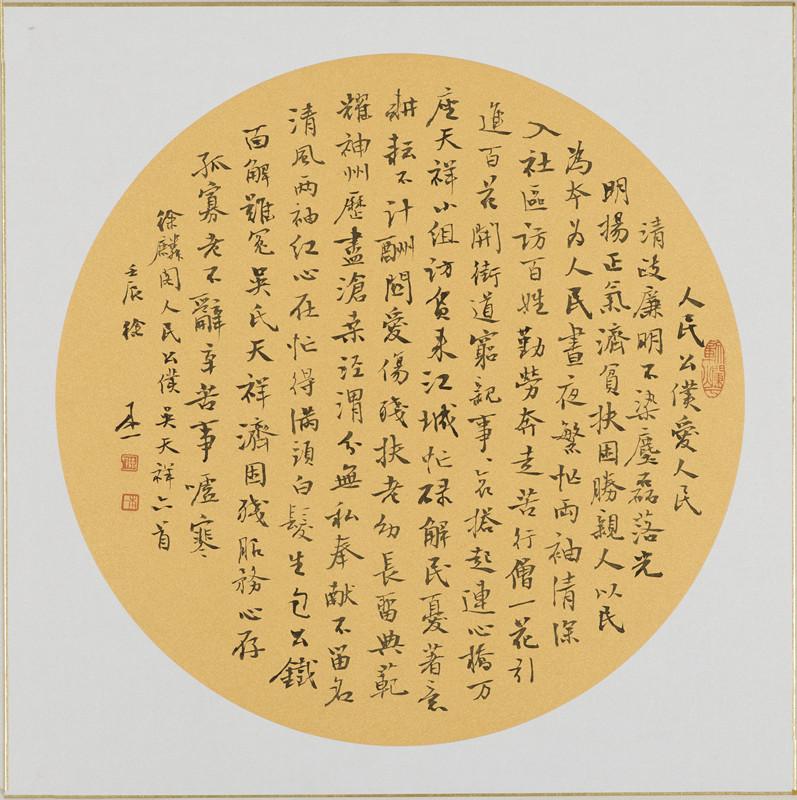 人民公僕愛人民
清政廉明不染塵磊落光
明揚正氣濟貧扶困勝親人以民
為本為人民晝夜繁忙兩袖清深
入社區訪百姓勤勞奔走苦行僧一花引
進百花開街道窮親事事哀搭起連心橋万
座天祥小組訪貧來江城忙碌解民憂著意
耕耘不計酬關愛傷殘扶老幼長留典範
耀神州歷盡滄桑泾渭分無私奉献不留名
清風兩袖红心在忙得滿頭白髮生包公鐵
面解難冤吳氏天祥濟困殘服務心存
孤寡老不辭辛苦事噓寒
徐麟閣人民公僕吳天祥六首
壬辰徐